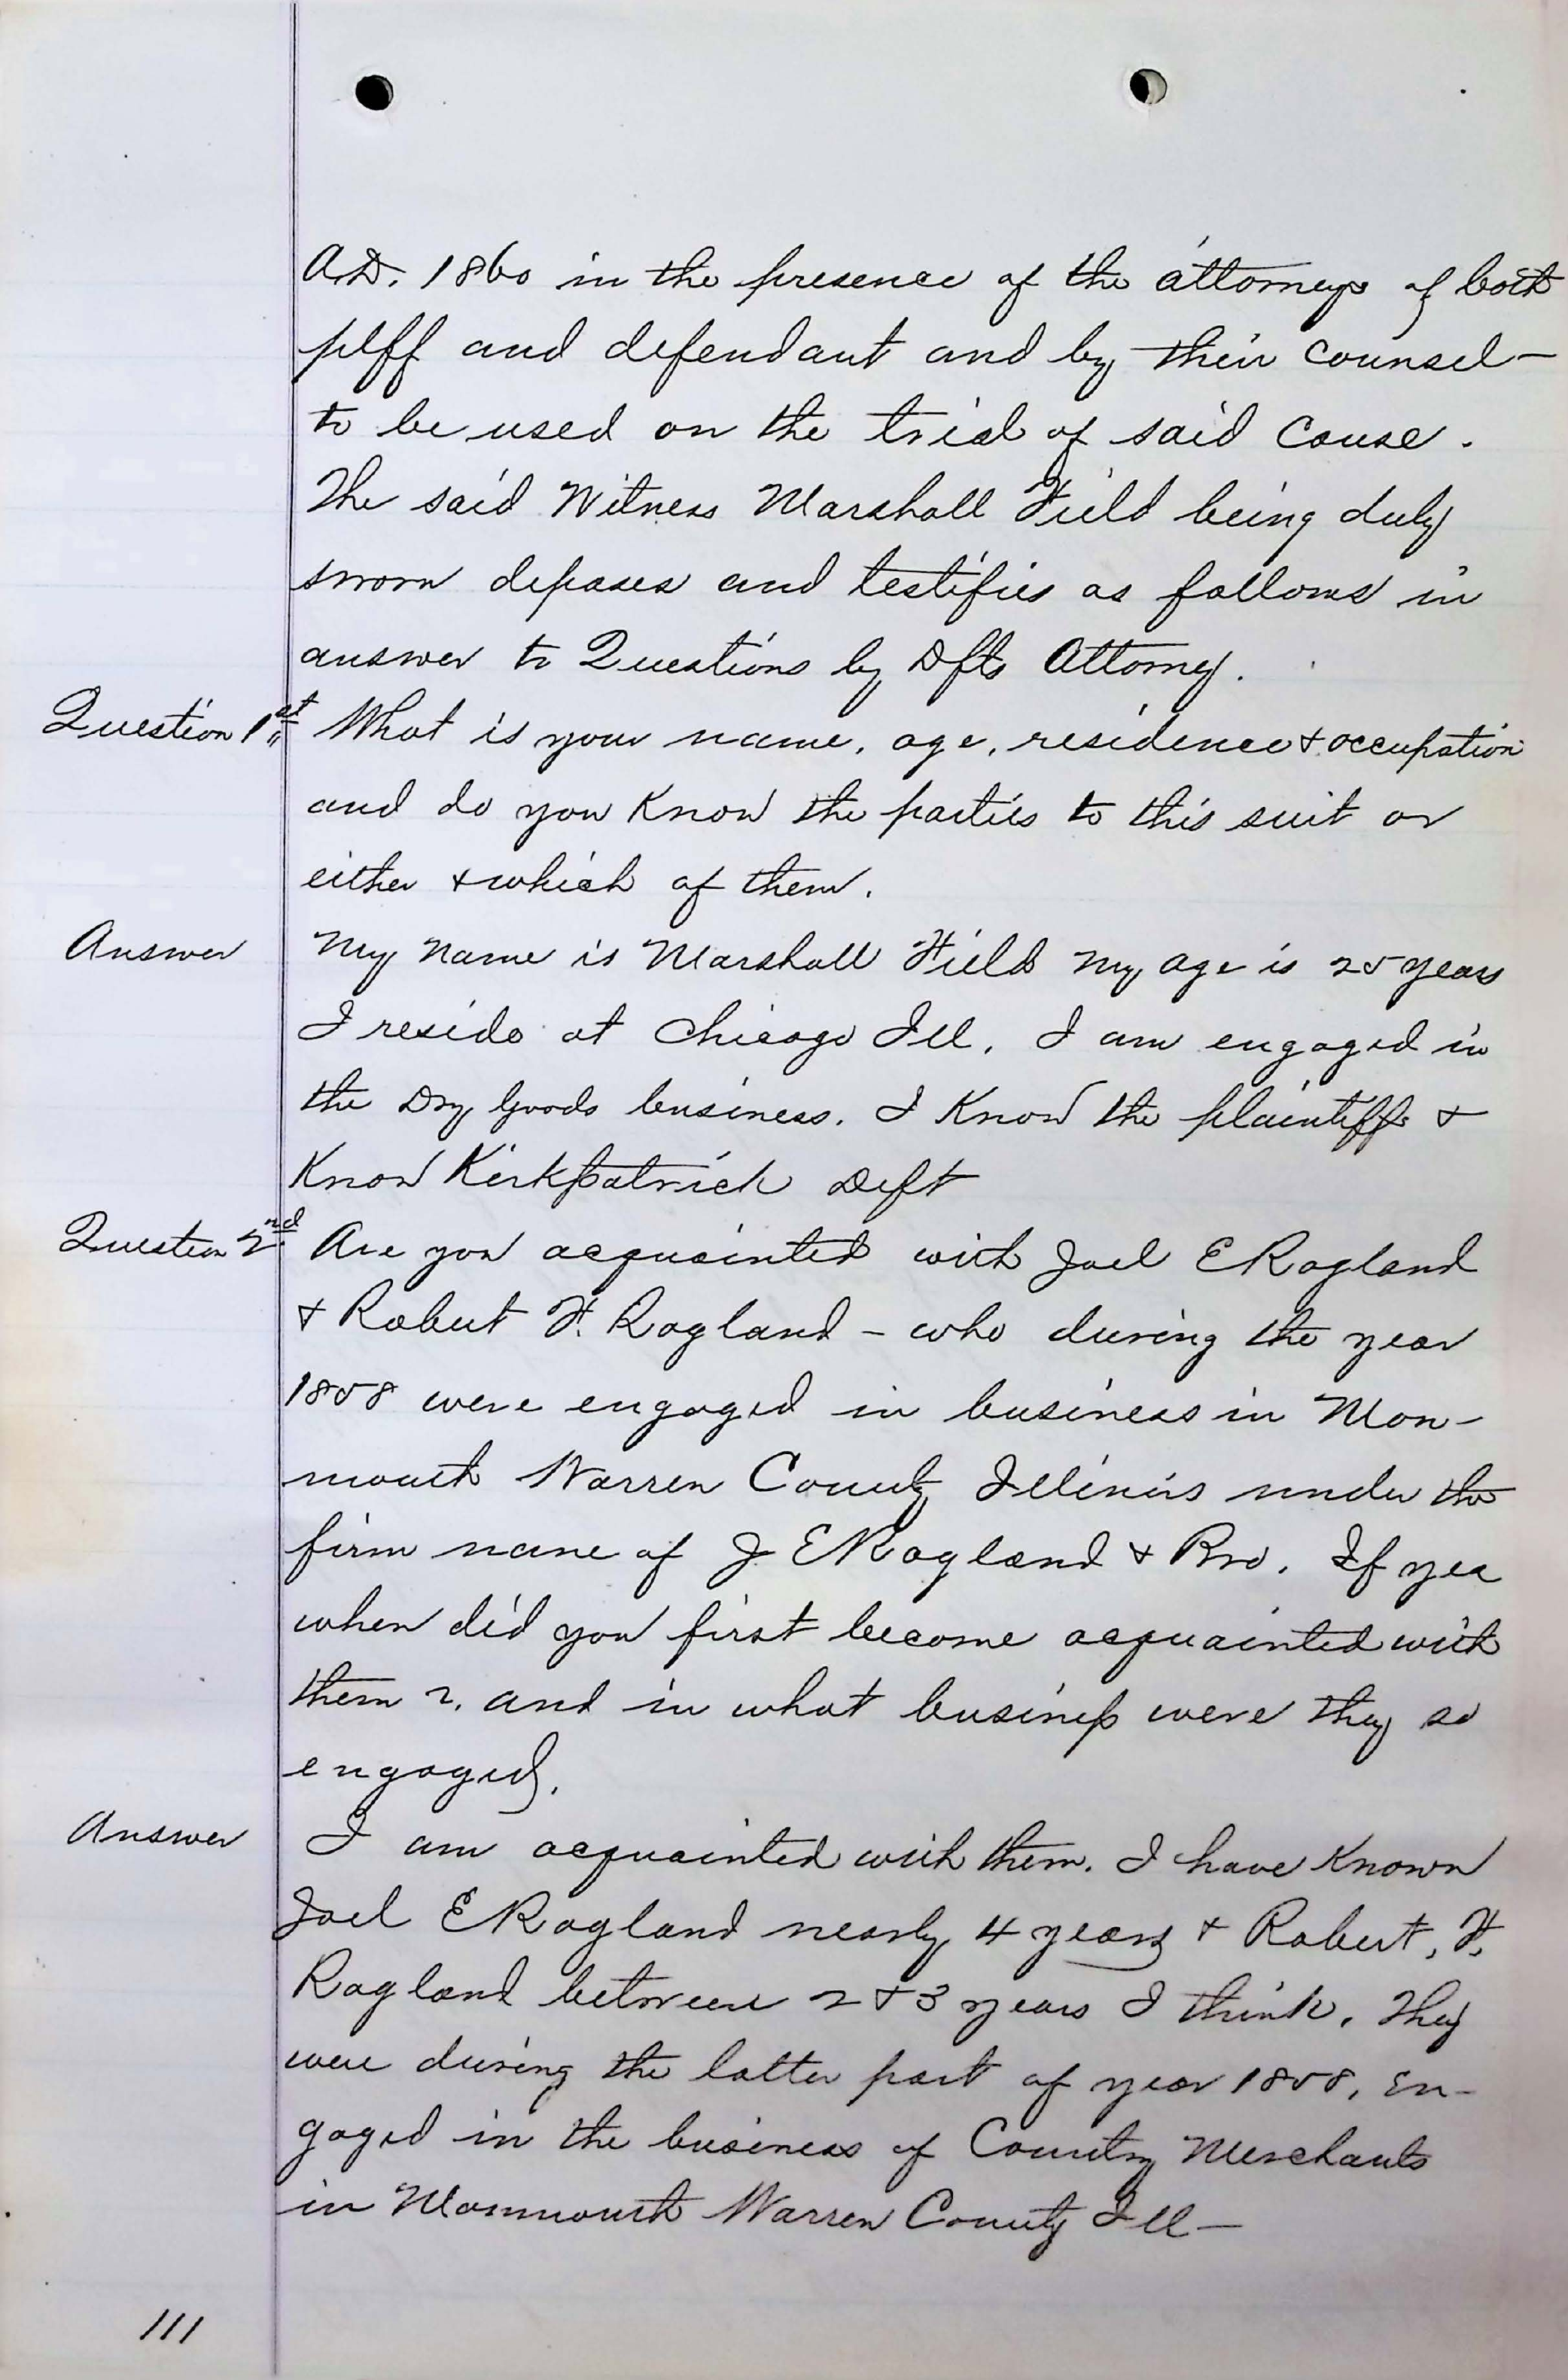 A.D. 1860 in the presence of the attorneys of both
plff and defendant and by their counsel -
to be used on the trial of said Cause.
The said Witness Marshall Field being duly
sworn deposes and testifies as follows in
answer to Questions by Dfts Attorney.
Question 1st What is your name, age, residence & occupation
and do you Know the parties to this suit or
either & which of them.
Answer My Name is Marshall Field my age is 25 years
I reside at Chicago Ill. I am engaged in
the Dry Goods business. I Know the plaintiffs &
Know Kirkpatrick Deft
Question 2nd Are you acquainted with Joel E Ragland
& Robert F. Ragland - who during the year
1858 were engaged in business in Mon-
mouth Warren County Illinois under the
firm name of J E Ragland & Bro. If yea
when did you first become acquainted with
them ?, and in what business were they so
engaged.
Answer I am acquainted with them. I have Known
Joel E Ragland nearly 4 years & Robert, F.
Ragland between 2 & 3 years I think. They
were during the latter part of year 1858, en-
gaged in the business of Country Merchants
in Monmouth Warren County Ill -
111